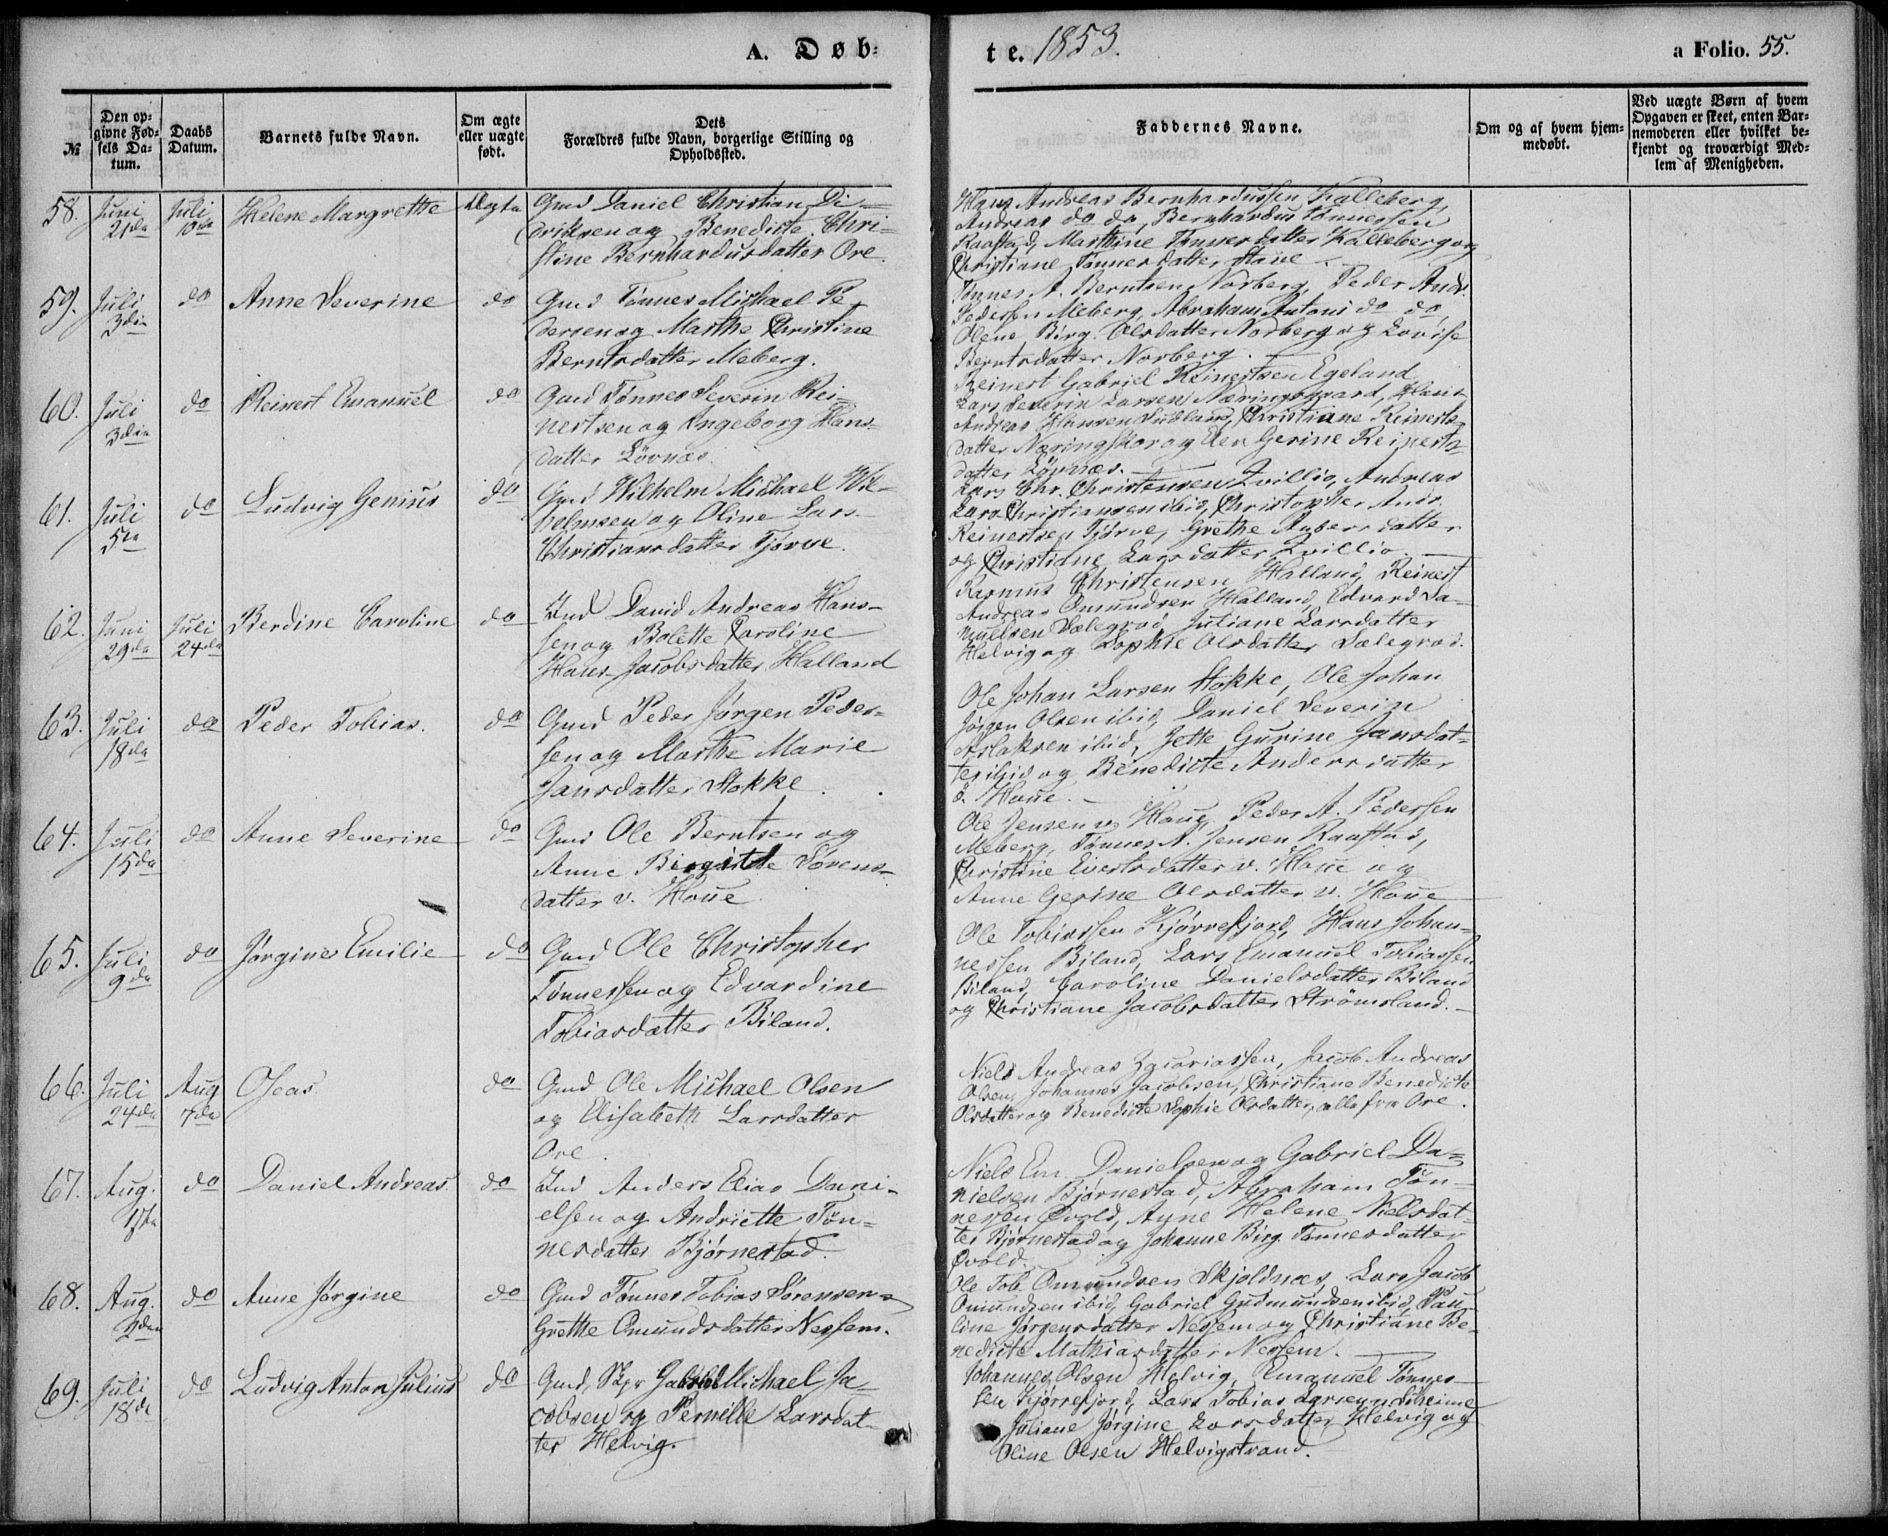 A. Døb-
te. 1853.
a Folio. 55.
№
Den op-
givne Fød-
sels Da-
tum.
Daabs
Datum.
Barnets fulde Navn.
Om ægte
eller uægte
født.
Dets
Forældres fulde Navn, borgerlige Stilling og
Opholdssted.
Faddernes Navne.
Om og af hvem hjem-
medøbt.
Ved uægte Børn af hvem
Opgaven er skeet, enten Bar-
nemoderen eller hvilket be-
kjendt og troværdigt Med-
lem af Menigheden.
58. Juni 21da Juli 10de Helene Margrethe Ægte
Gmd Daniel Christian Di-
driksen og Benedicte Chri-
stine Bernhardusdatter Ore.
Hans Andreas Bernhardussen Kalleberg,
Andreas do do, Bernhardus Tønnessen
Raastad, Marthine Tønnesdatter Kalleberg og
Christiane Tønnesdatter Haue.
59. Juli 3die do Anne Severine do
Gmd Tønnes Michael Pe-
dersen og Marthe Christine
Berntsdatter Meberg.
Tønnes A. Berntsen Norberg, Peder Andr.
Pedersen Meberg, Abraham Antoni do do,
Olene Birg. Olsdatter Norberg og Lovise
Berntsdatter Norberg.
60. Juli 3die do Reinert Emanuel do
Gmd Tønnes Severin Rei-
nertsen og Ingeborg Hans-
datter Løvnæs.
Reinert Gabriel Reinertsen Egeland,
Lars Severin Larsen Næringsgaard, Hans
Andreas Hansen, Christiane Reinerts-
datter og Elen Gerine Reinerts-
datter Løvnæs.
61. Juli 5te do Ludvig Genius do
Gmd Wilhelm Michael Wil-
helmsen og Oline Lars
Christiansdatter Tjørve.
Lars Chr. Christensen Zvillio, Andreas
Lars Christiansen ibid, Christopher Andr
Reinertsen Tjørve, Grethe datter
og Christiane Larsdatter Zvillio.
62. Juni 29de Juli 24de Berdine Caroline do
Ind David Andreas Hans-
sen og Bolette Caroline
Hans Jacobsdatter Halland
Rasmus Christensen Halland, Reinert
Andreas Omundsen Halland, Edvard Sa-
muelsen Sælegrod, Juliane Larsdatter
Helvig og Sophie Olsdatter Sælegrod.
63. Juli 18da do Peder Tobias. do
Gmd Peder Jørgen Peder-
sen og Marthe Marie
Jansdatter Stokke.
Ole Johan Larsen Stokke, Ole Johan
Jørgen Olsen ibid, Daniel Severin
Aslaksen ibid, Jette Gurine Jansdat-
ter ibid og Benedicte Andersdatter
ø. Haue.
64. Juli 15da do Anne Severine do
Gmd Ole Berntsen og
Anne Birgitte Sørens-
datter v. Haue.
Ole Jensen v. Haue, Peder A. Pedersen
Meberg, Tønnes A. Jensen Raastad,
Christine Evertsdatter v. Haue og
Anne Gerine Olsdatter v. Haue
65. Juli 9da do Jørgines Emilie do
Gmd Ole Christopher
Tønnessen og Edvardine
Tobiasdatter Biland.
Ole Tobiassen Kjørrefjord, Hans Johan-
nessen Biland, Lars Emanuel Tobiassen
Biland, Caroline Danielsdatter Biland
og Christiane Jacobsdatter Strømsland.
66. Juli 24da Aug 7da Oseas do
Gmd Ole Michael Olsen
og Elisabeth Larsdatter
Ore.
Niels Andreas Zacariassen, Jacob Andreas
Olsen, Johannes Jacobsen, Christiane Benedicte
Olsdatter og Benedicte Sophie Olsdatter, alle fra Ore.
67. Aug. 1ste do Daniel Andreas. do
Ind Anders Elias Dani-
elsen og Andriette Tøn-
nesdatter Bjørnestad.
Niels Em. Danielsen og Gabriel Da-
nielsen Bjørnestad, Abraham Tøn-
nessen Qvold, Anne Helene Nielsdat-
ter Bjørnestad og Johanne Birg. Tønnesdatter
Qvold.
68. Aug. do Anne Jørgine do
Gmd Tønnes Tobias Sørensen
Grethe Omundsdatter Nessem.
Ole Tob. Omundsen Skjoldnæs, Lars Jacob
Omundsen ibid, Gabriel Gudmundsen ibid, Pau-
line Jørgensdatter Nessem og Christiane Be-
nedicte Mathiasdatter Nessem.
69. Juli 18de do Ludvig Anton Julius do
Gmd, Skpr Gabriel Michael Ja-
cobsen og Pernille Larsdat-
ter Helvig.
Johannes Olsen Helvig, Emanuel Tønnes-
sen Kjørrefjord, Lars Tobias Larsen,
Juliane Jørgine Larsdatter Helvig og
Oline Olsen Helvigstrand.